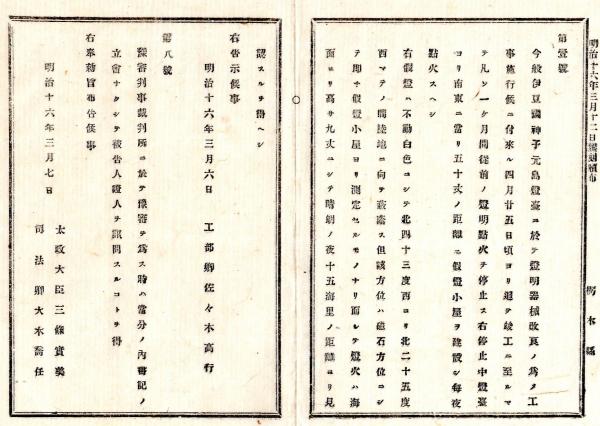 明治十六年三月十二日飜刻頒布
栃木縣
第壹號
今般伊豆國神子元島燈臺ニ於テ燈明器械改良ノ爲メ工
事施行候ニ付來ル四月廿五日頃ヨリ追テ竣工ニ至ルマ
テ凡ソ一ケ月間從前ノ燈明點火ヲ停止ス右停止中燈臺
ヨリ南東ニ當リ五十丈ノ距離ニ假燈小屋ヲ建設シ每夜
點火スヘシ
右假燈ハ不動白色ニシテ北四十三度西ヨリ北二十五度
西マテノ間陸地ニ向テ蔽齋ス但該方位ハ磁石方位ニシ
テ即チ假燈小屋ヨリ測定セルモノナリ而シテ燈火ハ海
面ヨリ高サ九丈ニシテ晴朗ノ夜十五海里ノ距離ヨリ見
認スルヲ得ヘシ
右告示候事
明治十六年三月六日 工部卿佐々木高行
第八號
豫審判事裁判所ニ於テ豫審ヲ爲ス時ハ當分ノ內書記ノ
立會ナクシテ被告人證人ヲ訊問スルコトヲ得
右奉勅旨布告候事
明治十六年三月七日
太政大臣三條實美
司法卿大木喬任